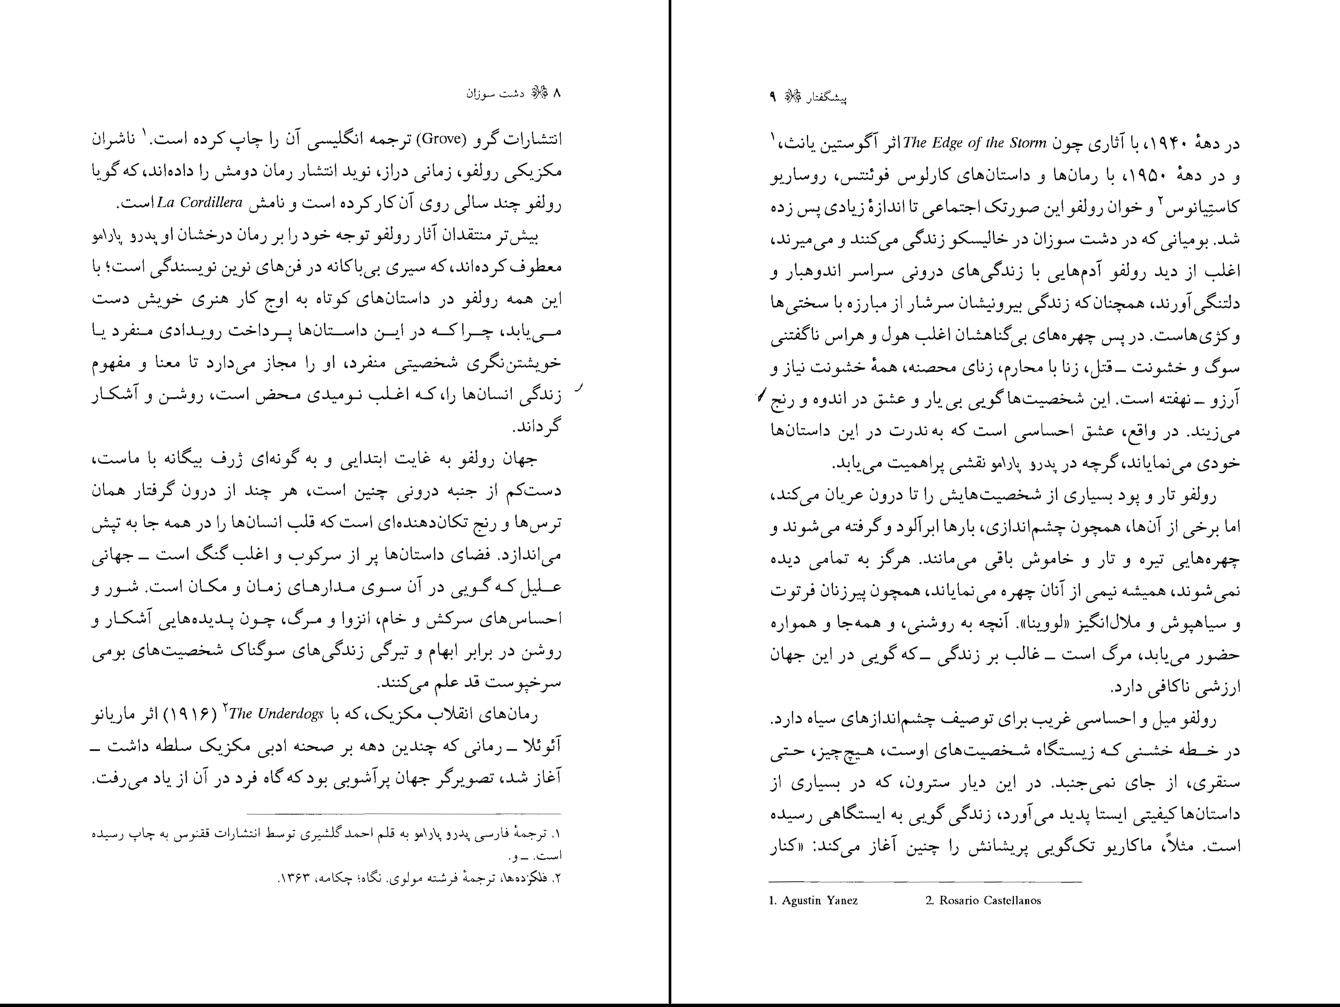 ۸ دشت سوزان
انتشارات گرو (Grove) ترجمه انگلیسی آن را چاپ کرده است.۱ ناشران
مکزیکی رولفو، زمانی دراز، نوید انتشار رمان دومش را داده‌اند، که گویا
رولفو چند سالی روی آن کار کرده است و نامش La Cordillera است.
بیش‌تر منتقدان آثار رولفو توجه خود را بر رمان درخشان او پدرو پارامو
معطوف کرده‌اند، که سیری بی‌باکانه در فن‌های نوین نویسندگی است؛ با
این همه رولفو در داستان‌های کوتاه به اوج کار هنری خویش دست
می‌یابد، چرا که در این داستان‌ها پرداخت رویدادی منفرد یا
خویشتن‌نگری شخصیتی منفرد، او را مجاز می‌دارد تا معنا و مفهوم
زندگی انسان‌ها را، که اغلب نومیدی محض است، روشن و آشکار
گرداند.
جهان رولفو به غایت ابتدایی و به گونه‌ای ژرف بیگانه با ماست،
دست‌کم از جنبه درونی چنین است، هر چند از درون گرفتار همان
ترس‌ها و رنج تکان‌دهنده‌ای است که قلب انسان‌ها را در همه جا به تپش
می‌اندازد. فضای داستان‌ها پر از سرکوب و اغلب گنگ است ــ جهانی
علیل که گویی در آن سوی مدارهای زمان و مکان است. شور و
احساس‌های سرکش و خام، انزوا و مرگ، چون پدیده‌هایی آشکار و
روشن در برابر ابهام و تیرگی زندگی‌های سوگناک شخصیت‌های بومی
سرخپوست قد علم می‌کنند.
رمان‌های انقلاب مکزیک، که با The Underdogs۲ (۱۹۱۶) اثر ماریانو
آئوئلا ــ رمانی که چندین دهه بر صحنه ادبی مکزیک سلطه داشت ــ
آغاز شد، تصویرگر جهان پرآشوبی بود که گاه فرد در آن از یاد می‌رفت.
۱. ترجمهٔ فارسی پدرو پارامو به قلم احمد گلشیری توسط انتشارات ققنوس به چاپ رسیده
است. ــ و.
۲. فلکزده‌ها، ترجمهٔ فرشته مولوی. نگاه؛ چکامه، ۱۳۶۳.
پیشگفتار ۹
در دههٔ ۱۹۴۰، با آثاری چون The Edge of the Storm اثر آگوستین یانث،۱
و در دههٔ ۱۹۵۰، با رمان‌ها و داستان‌های کارلوس فوئنتس، روساریو
کاستِیانوس۲ و خوان رولفو این صورتک اجتماعی تا اندازهٔ زیادی پس زده
شد. بومیانی که در دشت سوزان در خالیسکو زندگی می‌کنند و می‌میرند،
اغلب از دید رولفو آدم‌هایی با زندگی‌های درونی سراسر اندوهبار و
دلتنگی‌آورند، همچنان که زندگی بیرونیشان سرشار از مبارزه با سختی‌ها
و کژی‌هاست. در پس چهره‌های بی‌گناهشان اغلب هول و هراس ناگفتنی
سوگ و خشونت ــ قتل، زنا با محارم، زنای محصنه، همهٔ خشونت نیاز و
آرزو ــ نهفته است. این شخصیت‌ها گویی بی یار و عشق در اندوه و رنج
می‌زیند. در واقع، عشق احساسی است که به ندرت در این داستان‌ها
خودی می‌نمایاند، گرچه در پدرو پارامو نقشی پراهمیت می‌یابد.
رولفو تار و پود بسیاری از شخصیت‌هایش را تا درون عریان می‌کند،
اما برخی از آن‌ها، همچون چشم‌اندازی، بارها ابرآلود و گرفته می‌شوند و
چهره‌هایی تیره و تار و خاموش باقی می‌مانند. هرگز به تمامی دیده
نمی‌شوند، همیشه نیمی از آنان چهره می‌نمایاند، همچون پیرزنان فرتوت
و سیاهپوش و ملال‌انگیز «لووینا». آنچه به روشنی، و همه‌جا و همواره
حضور می‌یابد، مرگ است ــ غالب بر زندگی ــ که گویی در این جهان
ارزشی ناکافی دارد.
رولفو میل و احساسی غریب برای توصیف چشم‌اندازهای سیاه دارد.
در خطه خشنی که زیستگاه شخصیت‌های اوست، هیچ‌چیز، حتی
سنقری، از جای نمی‌جنبد. در این دیار سترون، که در بسیاری از
داستان‌ها کیفیتی ایستا پدید می‌آورد، زندگی گویی به ایستگاهی رسیده
است. مثلاً، ماکاریو تک‌گویی پریشانش را چنین آغاز می‌کند: «کنار
1. Agustin Yanez 2. Rosario Castellanos